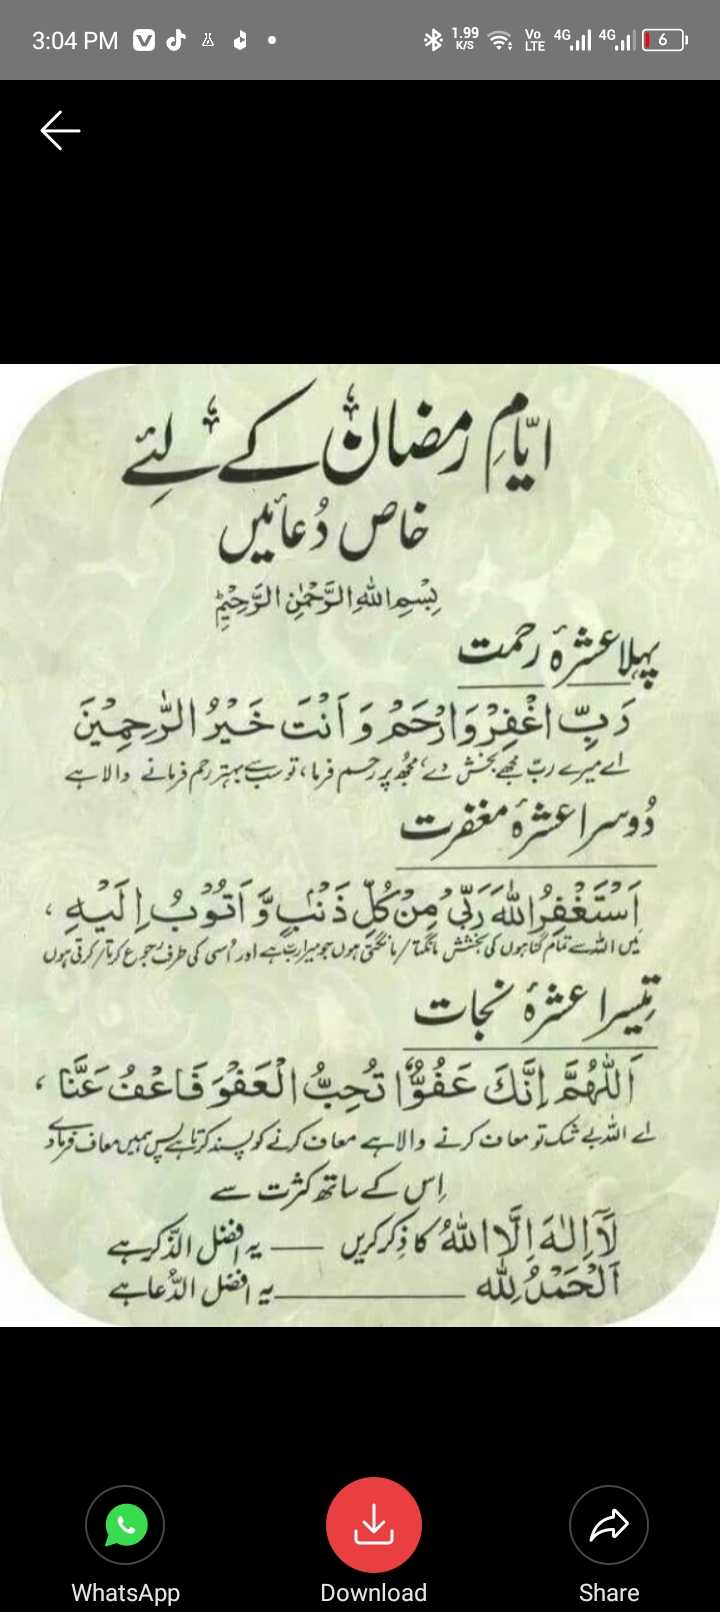 3:04 PM
1.99 K/S
Vo LTE 4G 4G 6
ایّامِ رمضان کے لئے
خاص دُعائیں
بِسْمِ اللهِ الرَّحْمٰنِ الرَّحِیْمِ
پہلا عشرۂ رحمت
رَبِّ اغْفِرْ وَارْحَمْ وَ اَنْتَ خَيْرُ الرّٰحِمِيْنَ
اے میرے ربّ مجھے بخش دے، مجھ پر رحم فرما، تو سب سے بہتر رحم فرمانے والا ہے
دُوسرا عشرۂ مغفرت
اَسْتَغْفِرُ اللهَ رَبِّىْ مِنْ كُلِّ ذَنْۢبٍ وَّ اَتُوْبُ اِلَيْهِ،
میں اللہ سے تمام گناہوں کی بخشش مانگتا/مانگتی ہوں جو میرا ربّ ہے اور اُسی کی طرف رجوع کرتا/کرتی ہوں
تیسرا عشرۂ نجات
اَللّٰهُمَّ اِنَّكَ عَفُوٌّا تُحِبُّ الْعَفْوَ فَاعْفُ عَنَّا،
اے اللہ بے شک تو معاف کرنے والا ہے معاف کرنے کو پسند کرتا ہے پس ہمیں معاف فرما دے
اِس کے ساتھ کثرت سے
لَآ اِلٰهَ اِلَّا اللهُ کا ذِکر کریں — یہ افضل الذّکر ہے
اَلْحَمْدُ لِلّٰه — یہ افضل الدُّعا ہے
WhatsApp
Download
Share